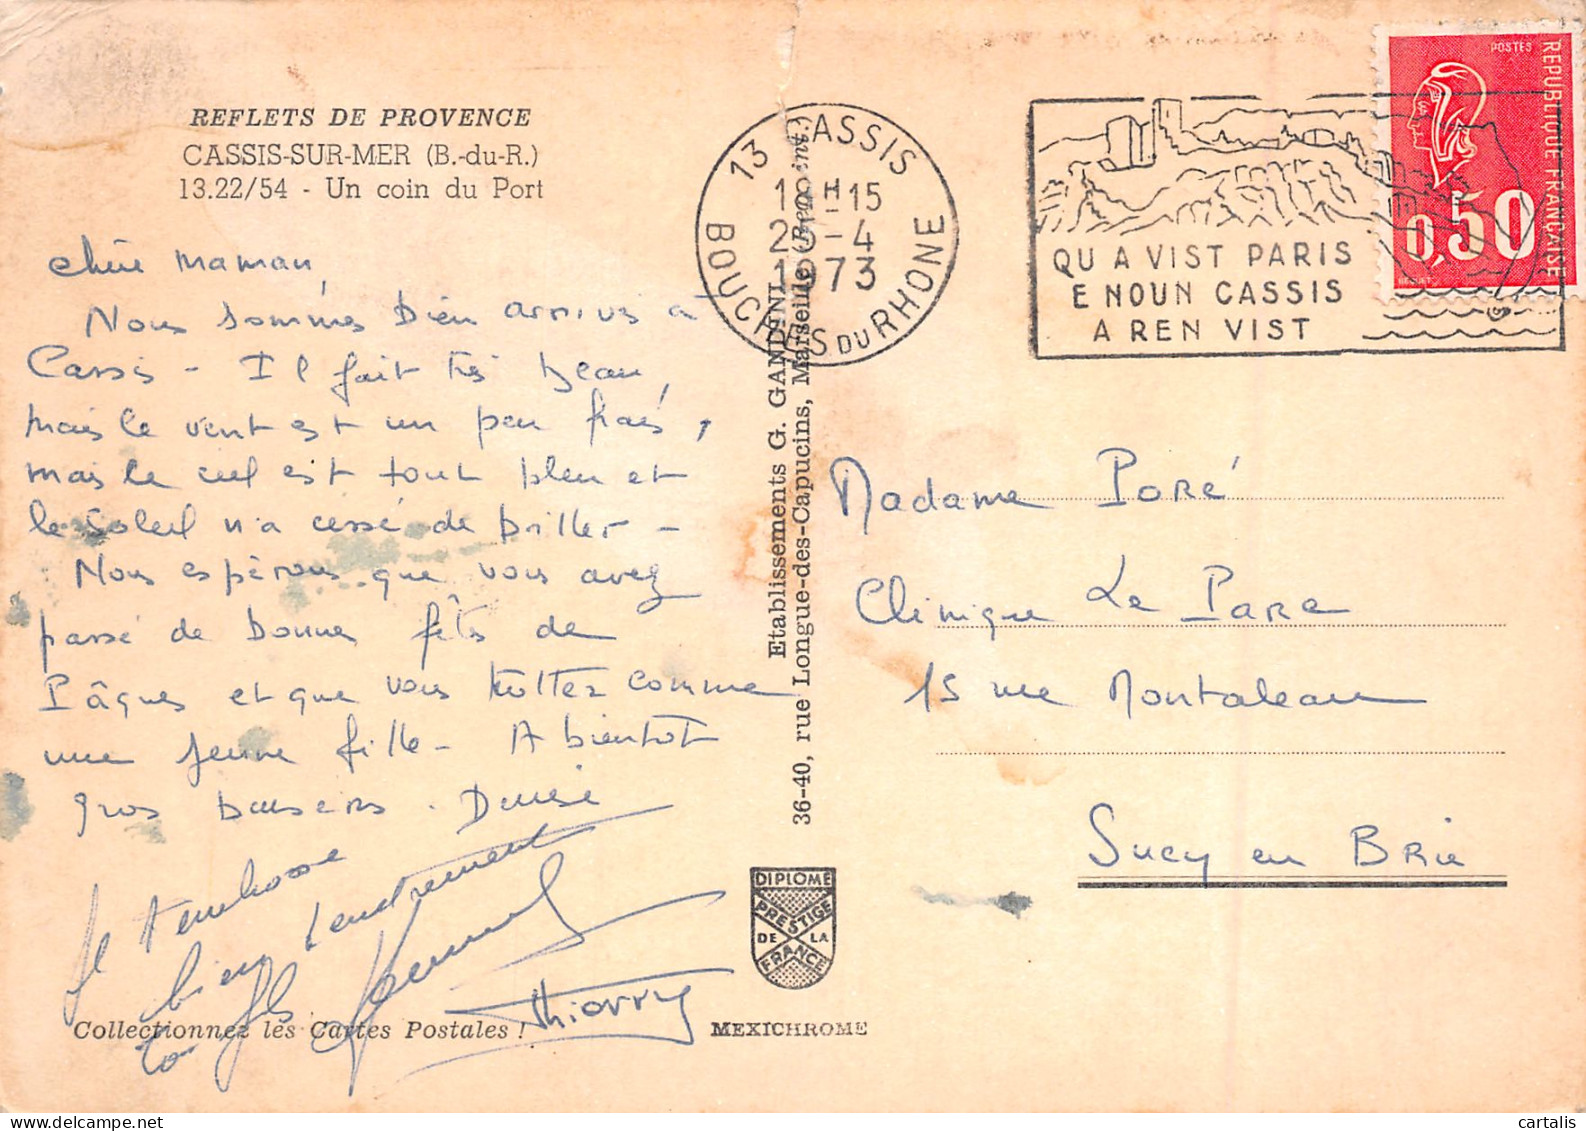 REFLETS DE PROVENCE
CASSIS-SUR-MER (B.-du-R.)
13.22/54 - Un coin du Port
Chère maman,
Nous sommes bien arrivés à
Cassis - Il fait très beau,
mais le vent est un peu frais,
mais le ciel est tout bleu et
le soleil n'a cessé de briller -
Nous espérons que vous avez
passé de bonnes fêtes de
Pâques et que vous trottez comme
une jeune fille - A bientôt
gros baisers. Denise
Je t'embrasse
bien tendrement
ton fils
Thierry
Collectionnez les Cartes Postales !
Etablissements G. GANDINI
36-40, rue Longue-des-Capucins, Marseille
DIPLOME
PRESTIGE
DE LA
FRANCE
MEXICHROME
13 CASSIS
H 15
-4
1973
BOUCHES DU RHONE
QU A VIST PARIS
E NOUN CASSIS
A REN VIST
POSTES
REPUBLIQUE FRANÇAISE
0,50
BEQUET
Madame Poré
Clinique Le Parc
15 rue Montaleau
Sucy en Brie
cartalis